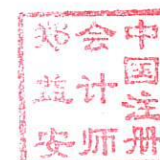 中国注册
会计师
龙益安